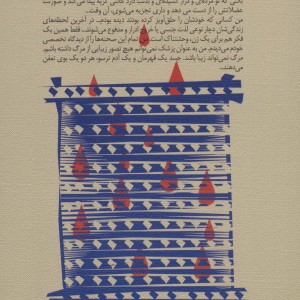 بختی که تو مرده‌ای و قرار کشیده‌ای و بدنت دارد حالتی کریه پیدا می‌کند و صورتت
عضلاتش را از دست می‌دهد و داری تجزیه می‌شوی، آن وقت...
من کسانی که خودشان را حلق‌آویز کرده بودند دیده بودم. در آخرین لحظه‌های
زندگی‌شان دچار نوعی لذت جنسی یا ادرار و مدفوع می‌شوند... فقط همین یک
فکر هم برای یک زن، وحشتناک است. من تمام این صحنه‌ها را از دیدگاه تخصصی
خودم می‌دیدم. من به عنوان پزشک نمی‌توانم هیچ تصور زیبایی از مرگ داشته باشم.
مرگ نمی‌تواند زیبا باشد. جسد یک قهرمان و یک آدم ترسو، هر دو یک بوی تعفن
می‌دهند.